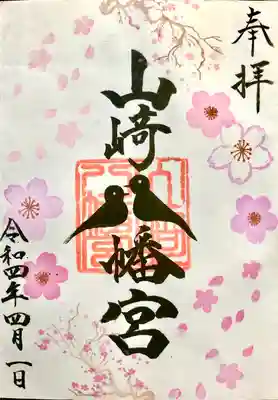 奉拝
山﨑八幡宮
令和四年四月一日